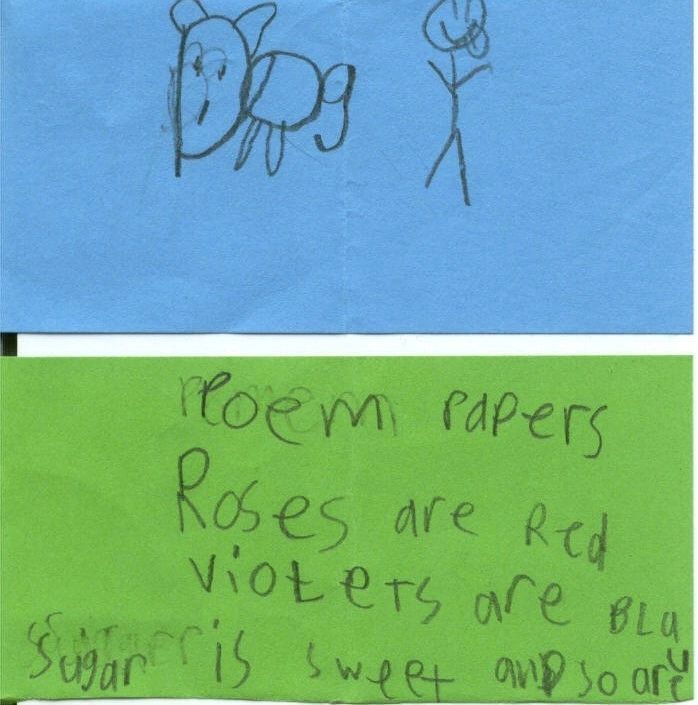 Poem papers
Roses are Red
violets are BLa
Sugar is sweet and so are u